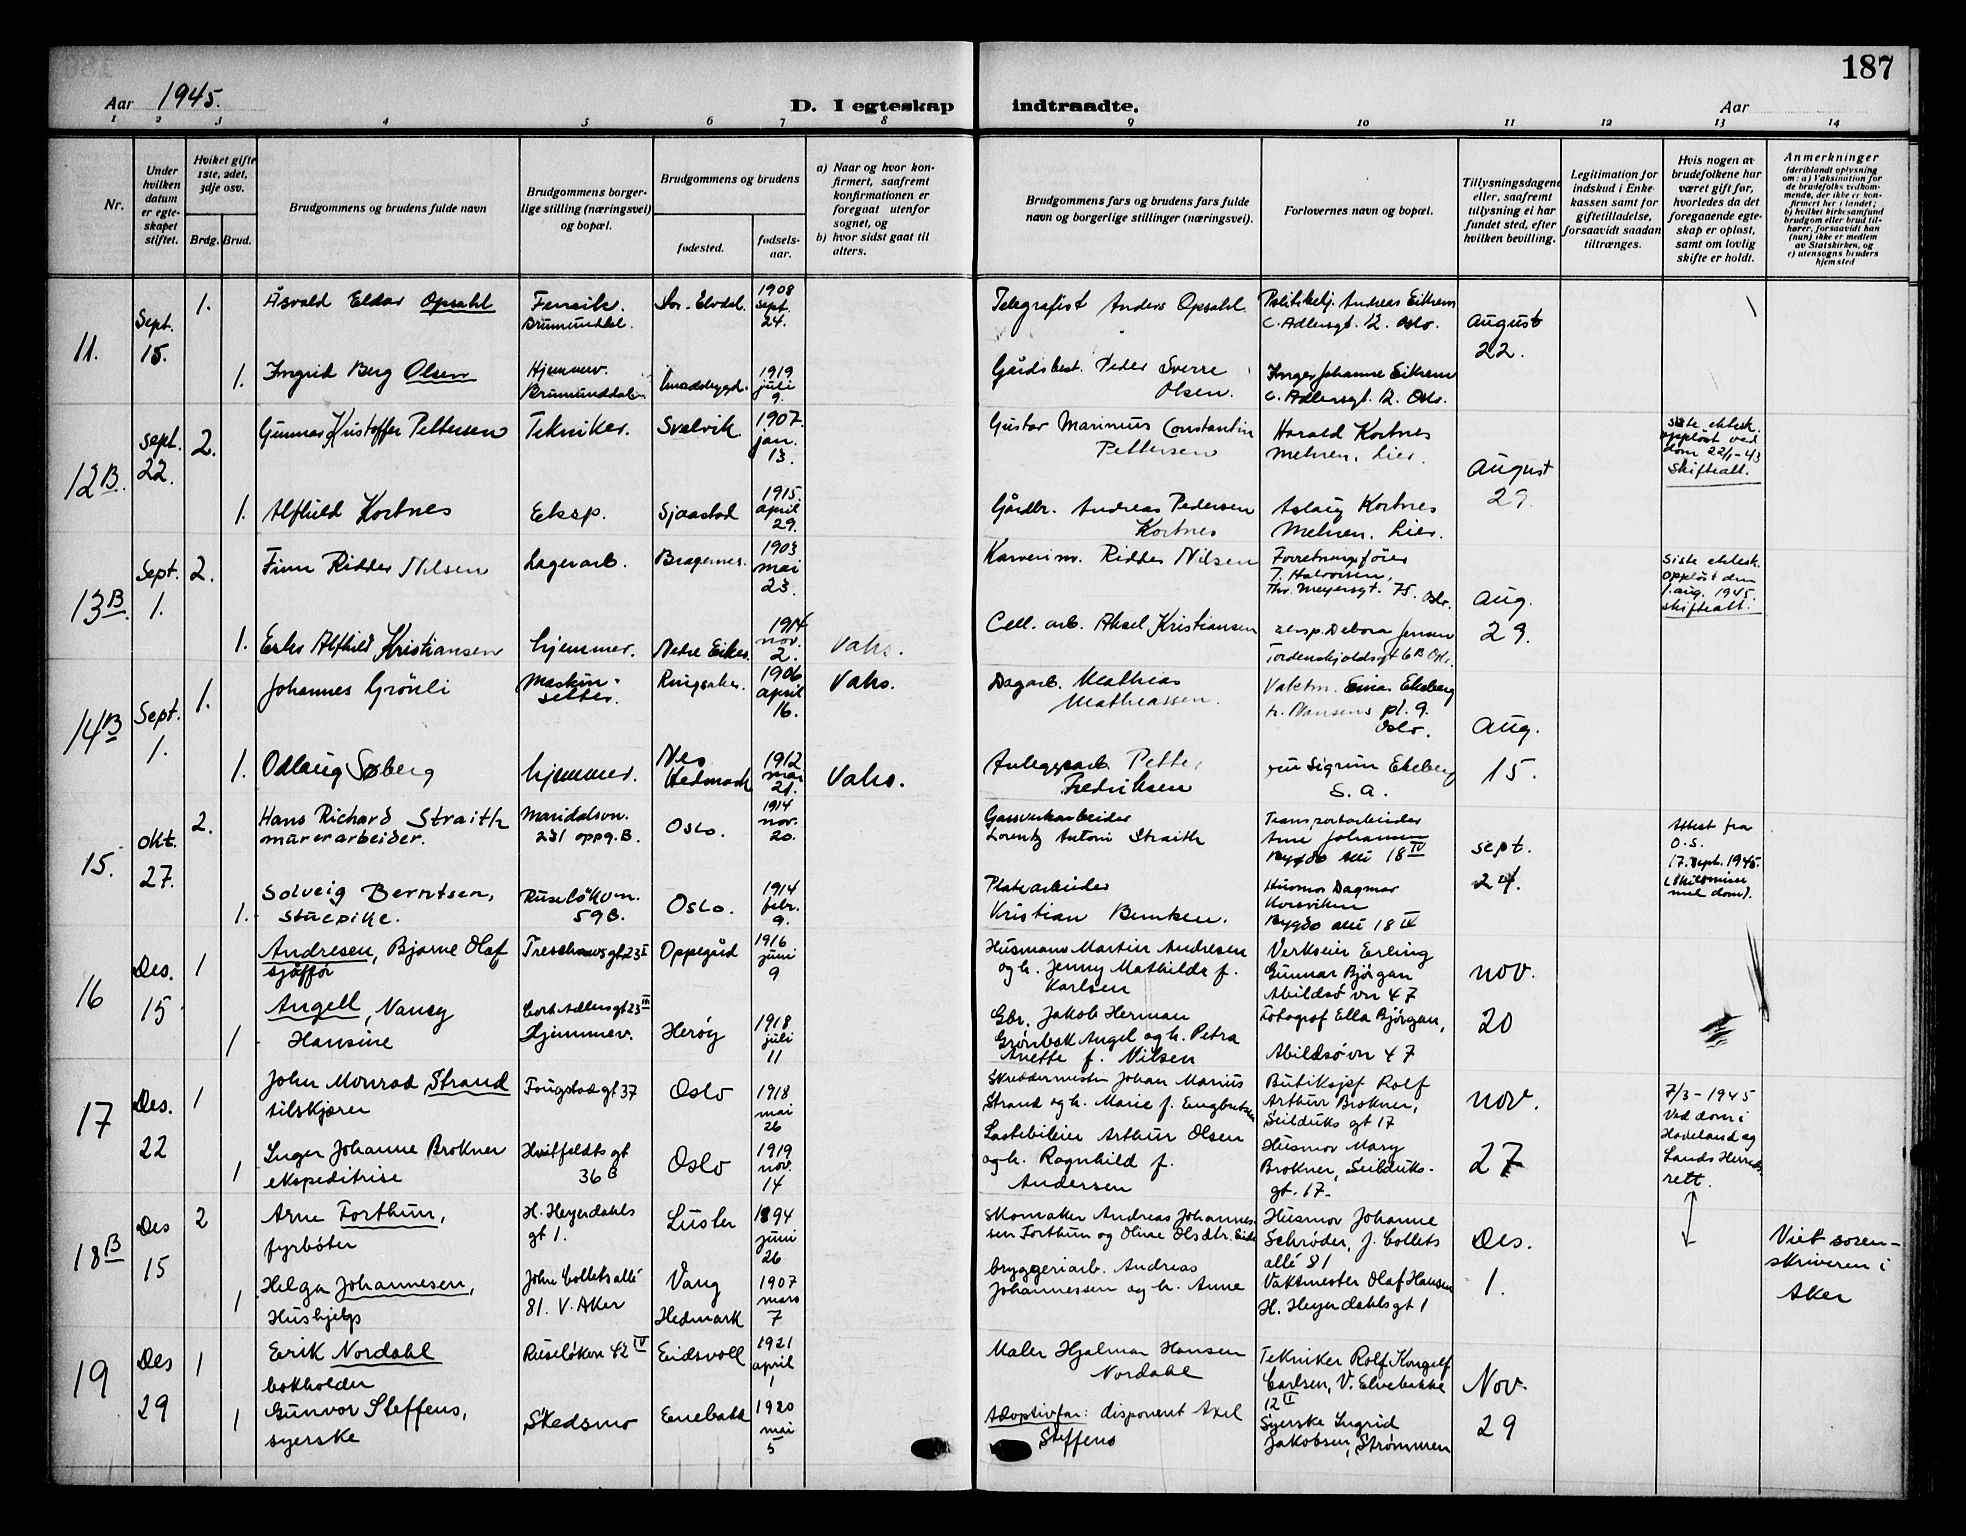 187
Aar 1945.
D. I egteskap indtraadte.
Aar
1 2 3 4 5 6 7 8 9 10 11 12 13 14
Nr.
Under hvilken datum er egteskapet stiftet.
Hvilket gifte 1ste, 2det, 3dje osv.
Brdg. Brud.
Brudgommens og brudens fulde navn
Brudgommens borgerlige stilling (næringsvei) og bopæl.
Brudgommens og brudens
fødested.
fødselsaar.
a) Naar og hvor konfirmert, saafremt konfirmationen er foregaat utenfor sognet, og
b) hvor sidst gaat til alters.
Brudgommens fars og brudens fars fulde navn og borgerlige stillinger (næringsvei).
Forlovernes navn og bopæl.
Tillysningsdagene eller, saafremt tillysning ei har fundet sted, efter hvilken bevilling.
Legitimation for indskud i Enkekassen samt for giftetilladelse, forsaavidt saadan tiltrænges.
Hvis nogen av brudefolkene har været gift før, hvorledes da det foregaaende egteskap er opløst, samt om lovlig skifte er holdt.
Anmerkninger (deriblandt oplysning om: a) Vaksination for de brudefolks vedkommende, der ikke er konfirmert her i landet; b) hvilket kirkesamfund brudgom eller brud tilhører, forsaavidt han (hun) ikke er medlem av Statskirken, og c) utensogns bruders hjemsted
11. Sept. 15. 1. Åsvald Eldar Opsahl
Fenrik. Brumunddal.
Stor-Elvdal.
1908 sept. 24.
Telegrafist Anders Opsahl.
Andreas Eikrem C. Adlersgt. 12. Oslo.
August 22.
1. Ingrid Berg Olsen
Hjemmev. Brumunddalen
1919 juli 9.
Gårdbest. Peder Sverre Olsen.
Inger Johanne Eikrem C. Adlersgt. 12. Oslo.
12B. Sept. 22. 2. Gunnar Kristoffer Pettersen
Tekniker.
Svelvik
1907. jan. 13.
Gustav Marinius Constantin Pettersen
Harald Kortnes
Lier.
August 29
Siste ektesk. oppløst ved dom 22/1-43 skifteatt.
1. Alfhild Kortnes
Eksp.
Sjaastad
1915. april 29.
Gårdbr. Andreas Pedersen Kortnes
Aslaug Kortnes
Lier.
13B. Sept. 1. 2. Finn Ridder Nilsen
Lagerarb.
Bragernes.
1903 mai 23.
Ridder Nilsen
Forretningsfører T. Halvorsen, Thv. Meyersgt. 75. Oslo.
Aug. 29.
Siste ektesk. oppløst den 1. aug. 1945. skifteatt.
1. Alfhild Kristiansen
hjemmev.
Nedre Eiker.
1914 nov. 2.
Vaks.
Cell. arb. Aksel Kristiansen
Eksp. Debora Jensen Tordenskjoldsgt 6B Oslo.
14B Sept. 1. 1. Johannes Grönli
Maskinsetter.
Ringsaker.
1906 april 16.
Vaks.
Dagarb. Mathias Matheassen.
Vaktm. Einar Ekeberg
pl. 9. Oslo.
Aug. 15.
1. Odlaug Søberg
hjemmev.
Nes Hedmark
1912 mai 21.
Vaks.
Anleggsarb. Petter Fredriksen
Fru Sigrun Ekeberg S. a.
15. Okt. 27. 2. Hans Richard Straith
murerarbeider.
Maridalsvn. 231 oppg. B.
Oslo.
1914 nov. 20.
Gassverkarbeider Lorentz Antoni Straith
Transportarbeider Arne Johansen Bygdø allé 18 IV
sept. 24.
Attest fra O.S. 17. sept. 1945.
1. Solveig Berntsen,
stuepike.
Ruseløkvn. 59B.
Oslo.
1914 febr. 9.
Platearbeider
Kristian
Husmor Dagmar Korsviken Bygdø allé 18 IV
16 Des. 15 1 Andresen, Bjarne Olaf
sjåfför
Treschowsgt 23 I
Oppegård
1916 juni 9
Husmann Martin Andresen og h. Jenny Mathilde f. Karlsen
Verkseier Erling Gunnar Björgan Abildsø vn 47
nov. 20
1 Angell, Nancy
Hansine
Cort Adlersgt 23 III
Hjemmev.
Herøy
1918 juli 11
Gbr. Jakob Herman Grønbek Angel og h. Petra Anette f. Nilsen
Fotograf Ella Björgan, Abildsövn 47
17 Des. 22 1 John Monrad Strand
tilskjærer
Fougstadgt 37
Oslo
1918 mai 26
Skreddermester Johan Marius Strand og h. Marie f. Engbretsen
Butiksjef Rolf Arthur Brokner, Seilduks gt 17
nov. 27
7/3-1945 Ved dom i Hadeland og Lands Herredsrett.
1 Inger Johanne Brokner
ekspeditrise
Hvitfeldts gt 36B
Oslo
1919 nov. 14
Lastebileier Arthur Olsen og h. Ragnhild f. Andersen
Husmor Mary Brokner, Seilduks-gt. 17-
18B Des 15 2 Arne Forthun,
fyrbøter
H. Heyerdahls gt 1.
Luster
1894 juni 26
Skomaker Andreas Johannessen Forthun og Oline Olsdtr. Eide
Husmor Johanne Schrøder, J. Collets allé 81
Des. 1.
Viet soren-skriveren i Aker
1 Helga Johannesen,
Hushjelp
John Collets allé 81. V. Aker
Vang Hedmark
1907 mars 7
bryggeriarb. Andreas Johannessen og h. Anne
Vaktmester Olaf Hansen H. Heyerdahlsgt 1
19 Des 29 1 Erik Nordahl
bokholder
Ruseløkvn 42 IV
Eidsvoll
1921 april 1
Maler Hjalmar Hansen Nordahl
Tekniker Rolf Kongelf Carlsen, V. Elvebakke 12 I
Nov. 29
1 Gunvor Steffens,
syerske
Skedsmo
Enebakk
1920 mai 5
Adoptivfar: disponent Axel Steffens
Syerske Ingrid Jakobsen, Strømmen